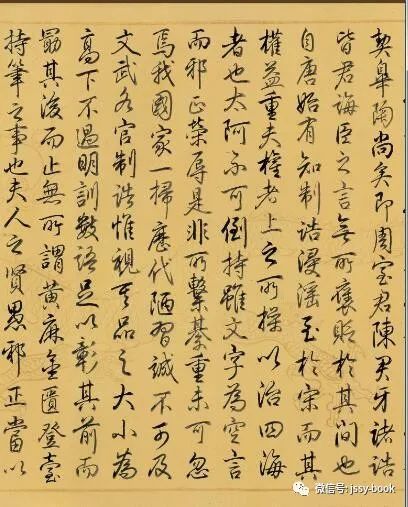 契皋陶尚矣即周室君陳君牙諸誥
皆君誨臣之言無所褒貶於其間也
自唐始有知制誥浸淫至於宋而其
權益重夫權者上之所操以治四海
者也太阿不可倒持雖文字為空言
而邪正榮辱是非所繫綦重未可忽
焉我國家一掃歷代陋習誠不可及
文武各官制誥惟視其品之大小為
高下不過明訓數語足以彰其前而
勗其後而止無所謂黃麻金匱登臺
持筆之事也夫人之賢愚邪正當以
微信号: jssy-book